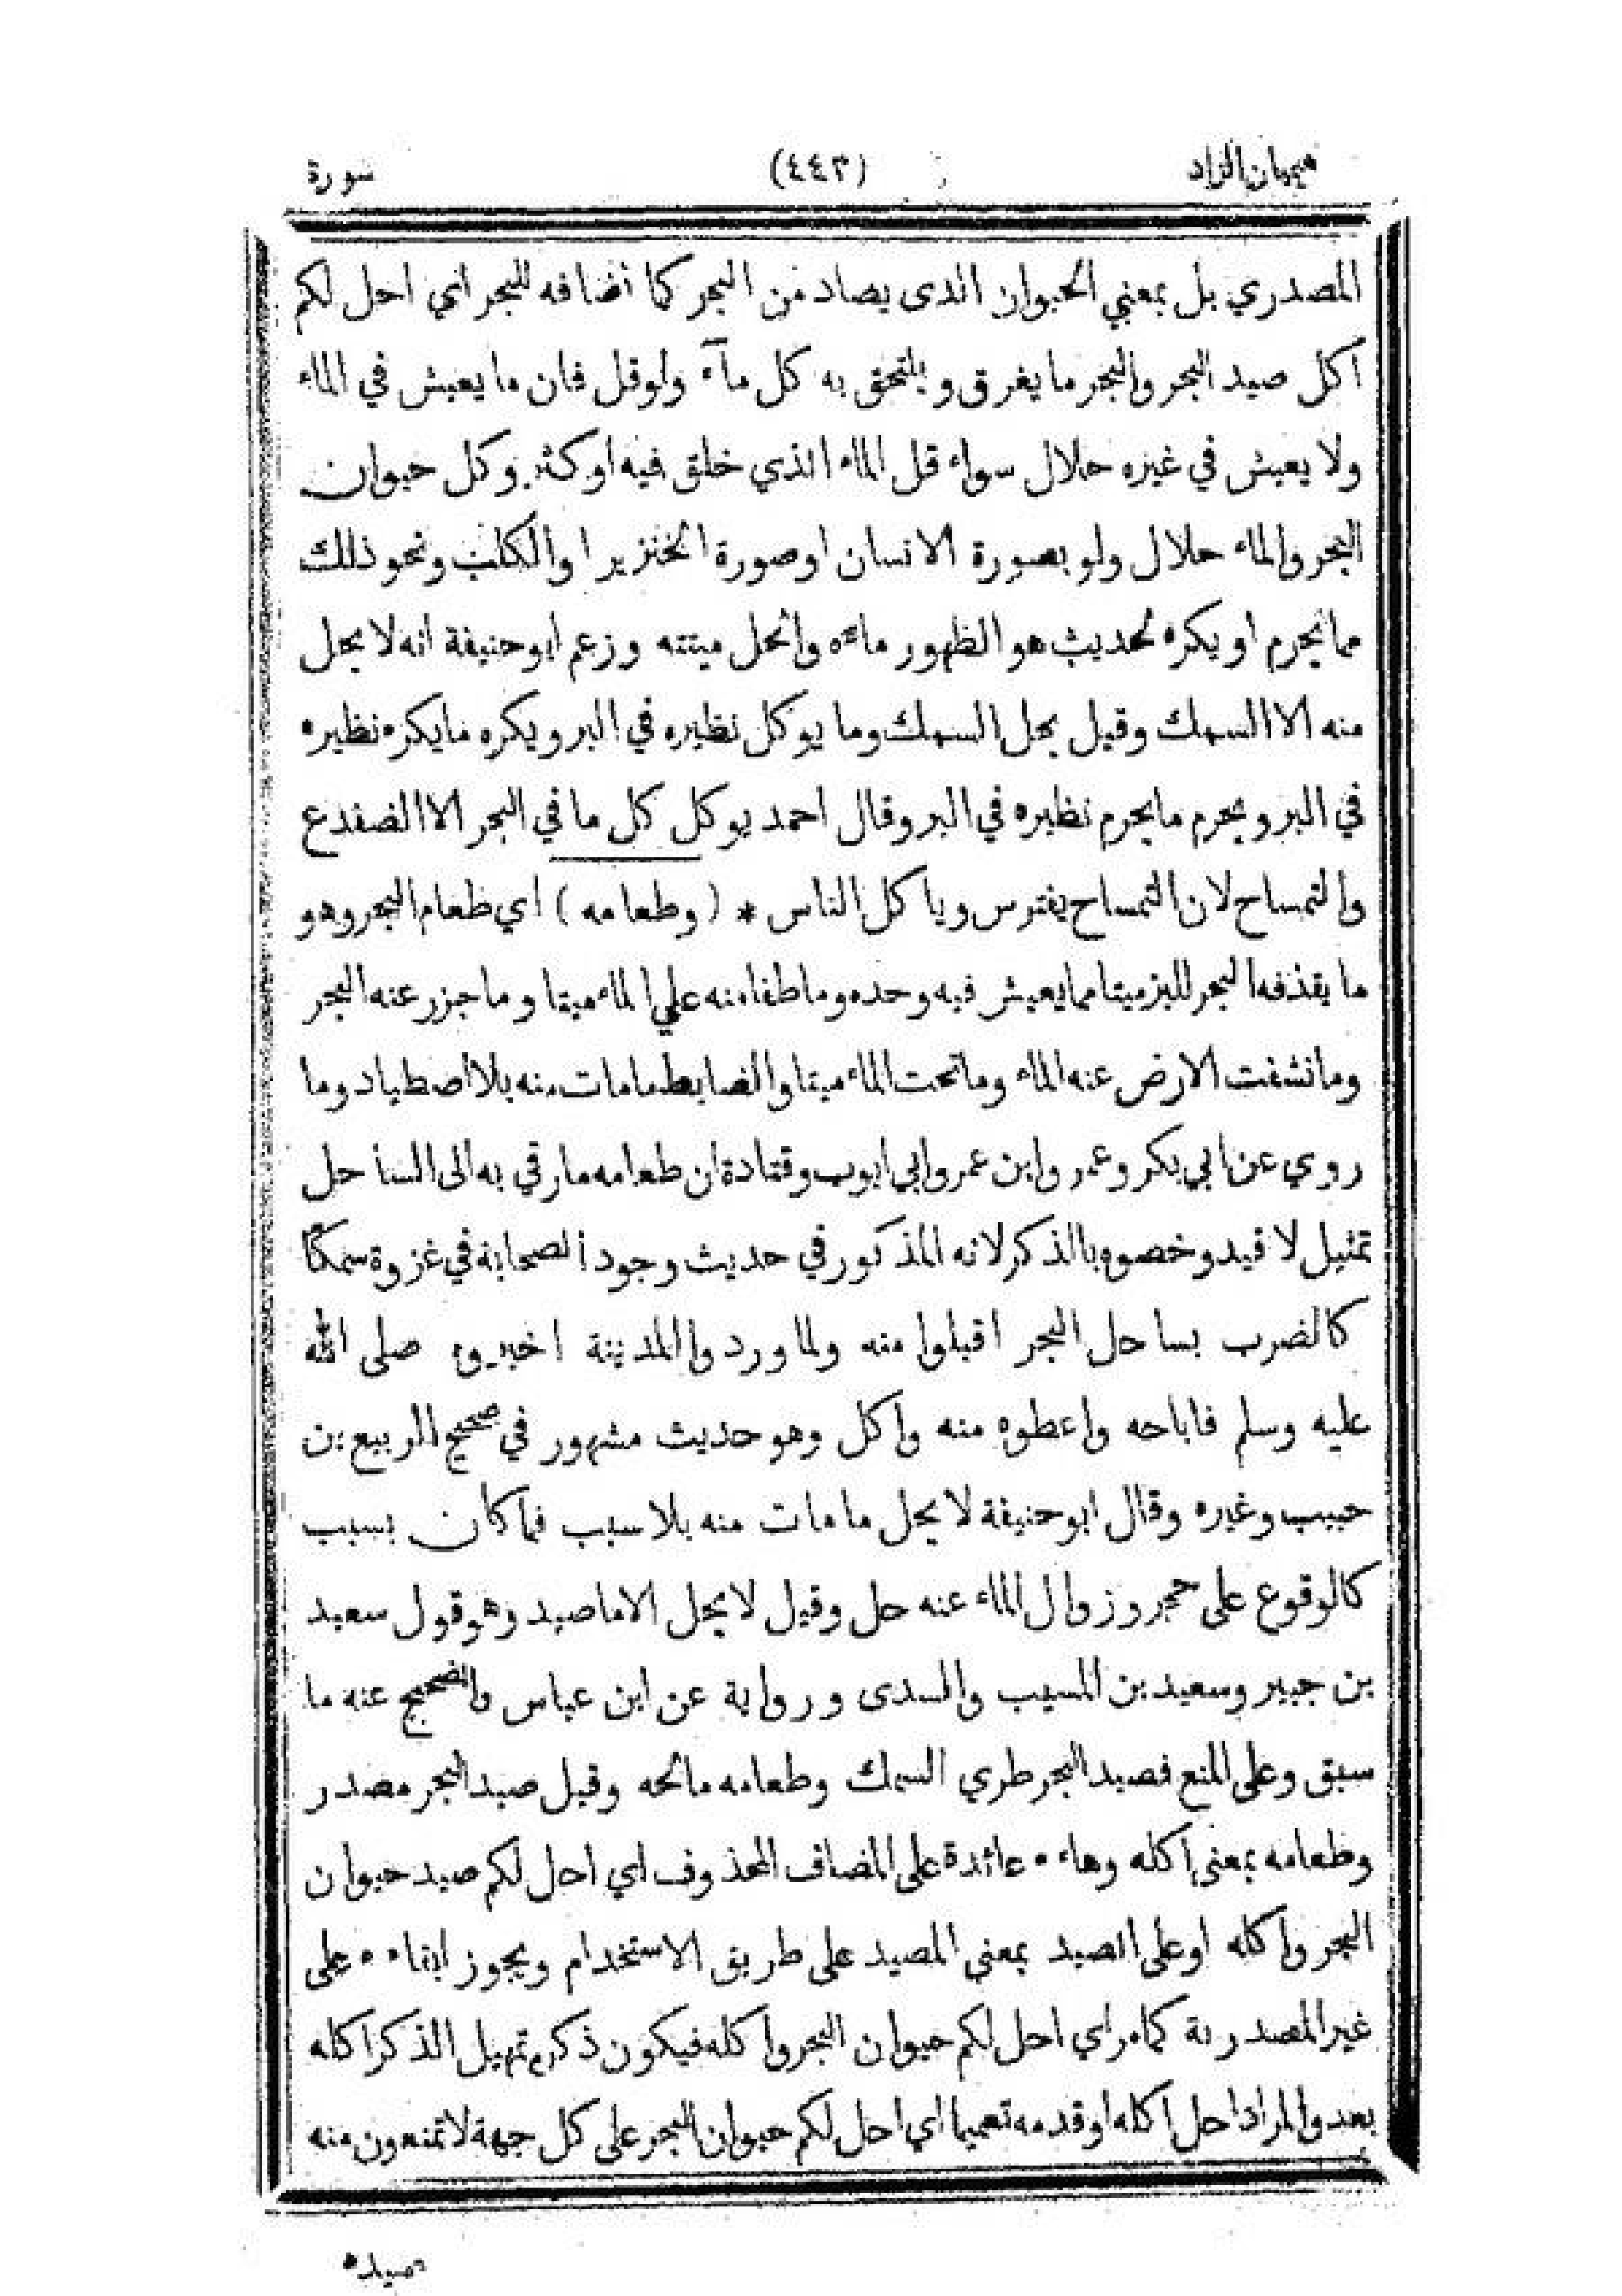 هيميان الزاد (٤٤٣) سورة
المصدري بل بمعني الحيوان الذى يصاد من البحر كما اضافه للبحر اي احل لكم
اكل صيد البحر والبحر ما يغرق ويلتحق به كل مآء ولو قل فان ما يعيش في الماء
ولا يعيش في غيره حلال سواء قل الماء الذي خلق فيه او كثر وكل حيوان
البحر والماء حلال ولو بصورة الانسان او صورة الخنزير او الكلب ونحو ذلك
مما يحرم او يكره لحديث هو الطهور ماءه والحل ميتته وزعم ابو حنيفة انه لا يحل
منه الا السمك وقيل يحل السمك وما يوكل نظيره في البر ويكره ما يكره نظيره
في البر ويحرم ما يحرم نظيره في البر وقال احمد يوكل كل ما في البحر الا الضفدع
والتمساح لان التمساح يفترس وياكل الناس * (وطعامه) اي طعام البحر وهو
ما يقذفه البحر للبر ميتا مما يعيش فيه وحده وما طفا منه علي الماء ميتا وما جزر عنه البحر
وما نشفت الارض عنه الماء وما تحت الماء ميتا والضابط ما مات منه بلا اصطياد وما
روي عن ابي بكر وعمر وابن عمر وابي ايوب وقتادة ان طعامه ما رقي به الى الساحل
تمثيل لا قيد وخصوه بالذكر لانه المذكور في حديث وجود الصحابة في غزوة سمكًا
كالضرب بساحل البحر اقبلوا منه ولما وردوا المدينة اخبروه صلى الله
عليه وسلم فاباحه واعطوه منه واكل وهو حديث مشهور في صحيح الربيع بن
حبيب وغيره وقال ابو حنيفة لا يحل ما مات منه بلا سبب فما كان بسبب
كالوقوع على حجر وزوال الماء عنه حل وقيل لا يحل الا ما صيد وهو قول سعيد
بن جبير وسعيد بن المسيب والسدى ورواية عن ابن عباس والصحيح عنه ما
سبق وعلى المنع فصيد البحر طري السمك وطعامه مالحه وقيل صيد البحر مصدر
وطعامه بمعنى اكله وهاءه عائدة على المضاف المحذوف اي احل لكم صيد حيوان
البحر واكله او على الصيد بمعنى المصيد على طريق الاستخدام ويجوز ابقاءه على
غير المصدرية كما مر اي احل لكم حيوان البحر واكله فيكون ذكره تمهيل الذكر اكله
بعد والمراد احل اكله او قدمه تعميما اي احل لكم حيوان البحر على كل جهة لا تمنعون منه
صيده